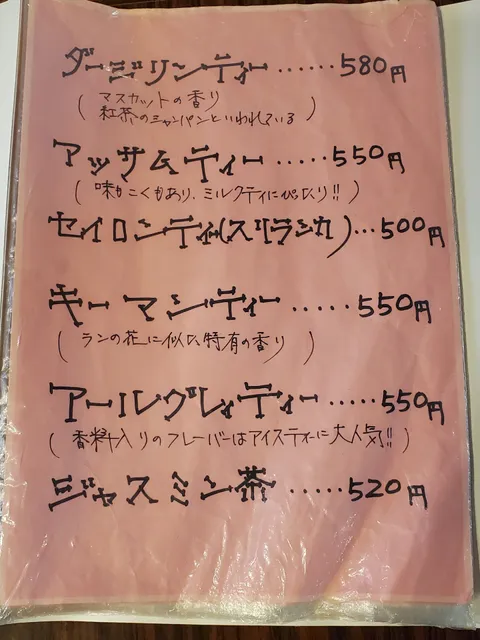 ダージリンティー ・・・・・・ 580円
( マスカットの香り
紅茶のシャンパンといわれている )
アッサムティー ・・・・・ 550円
(味もこくもあり、ミルクティにぴったり!!)
セイロンティ(スリランカ)・・・500円
キーマンティー ・・・・・ 550円
( ランの花に似た特有の香り )
アールグレィティー ・・・・・ 550円
(香料入りのフレーバーはアイスティに大人気!!)
ジャスミン茶 ・・・・・・ 520円